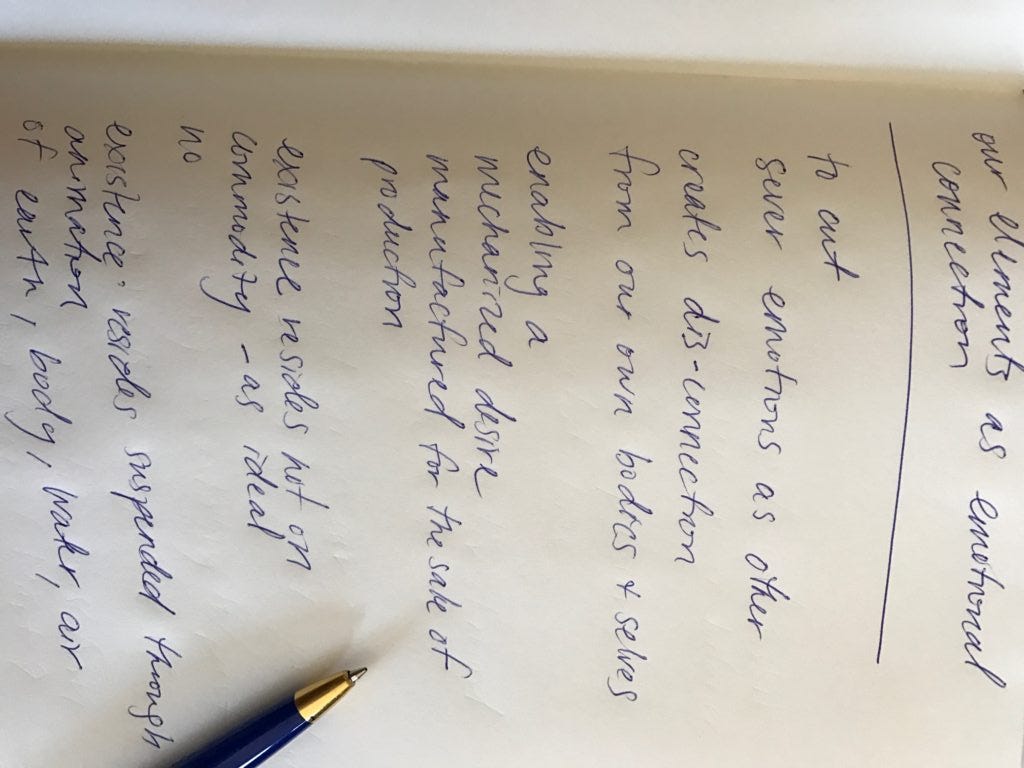 our elements as emotional
connection
to cut
sever emotions as other
creates dis-connection
from our own bodies + selves
enabling a
mechanized desire
mannufactured for the sake of
production
existence resides not on
commodity - as ideal
no
existence resides suspended through
animation
of earth, body, water, air